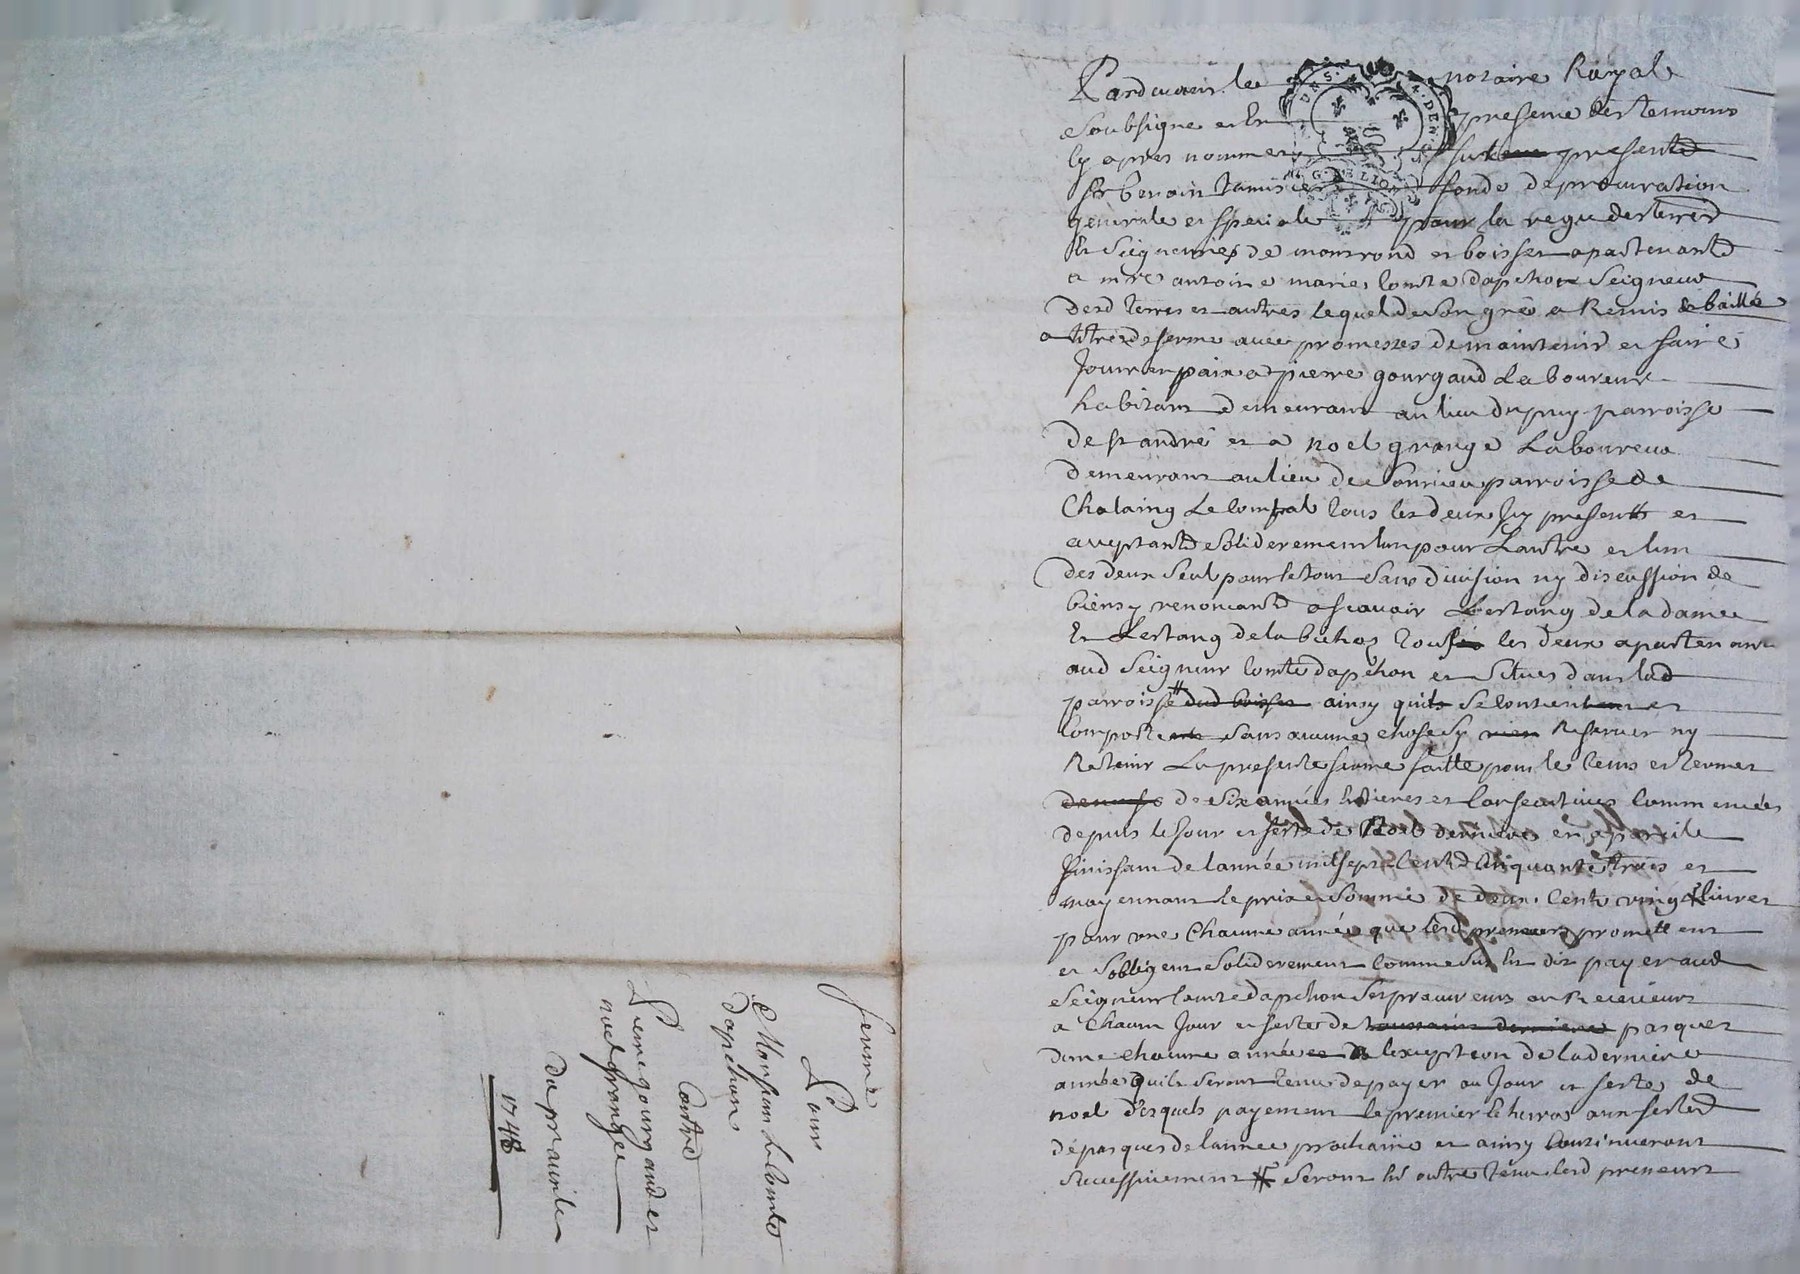 Pardevant le notaire Royal
Soubsigne et En presence des temoins
cy apres nommes fut presente
Sr benoin fonde de procuration
generale et speciale pour la regie des terres
Et Seigneuries de monrond et boisset apartenants
a mre antoine marie Comte dapchon Seigneur
desd terres et autres lequel de son gré a Remis et baillé
a titre de ferme avec promesses de maintenir et faire
Jouir en paix a pierre gourgaud Laboureur
habitant demeurant au lieu du puy parroisse
de st andré et a noel grange Laboureur
demeurant au lieu de parroisse de
Chalaing Le Comtal tous les deux Icy presents et
aceptants soliderement lun pour Lautre et lun
des deux seul pour le tout sans division ny discussion de
biens y renoncants ascavoir Lestang de la dame
Et Lestang de la tous les deux apartenant
aud Seigneur Comte dapchon et Situes dans lad
parroisse # dud boisset ainsy quils se contienent et
Comportent sans aucune chose y rien Reserver ny
Retenir La presente ferme faitte pour le tems et termes
de six années Entieres et Consecutives Commencées
depuis le Jour et feste de Noel derniere et a pareile
finissant de lannée mil sept Cents Cinquante trois et
moyennant le prix et somme de deux Cents vingt livres
pour une Chacune année que lesd preneurs promettent
et sobligent soliderement Comme sus Est dit payer aud
Seigneur Comte dapchon ses procureurs ou Receveurs
a Chacun Jour et feste de toussaint derniere pasques
dune chacune année a lexception de la derniere
année quils seront tenu de payer au Jour et feste de
noel desquels payement le premier Echura aux festes
de pasques de lannee prochaine et ainsy Continueront
successivement # seront En outre tenu lesd preneurs
ferme
Pour
Monsieur le Comte
dapchon
Contre
Pierre gourgaud et
noel grange
Du
1748